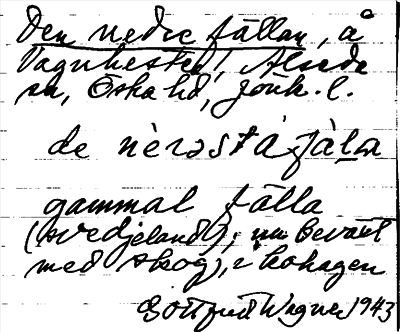 Den nedre fällan, å
Vagnhester, Alseda
sn, Östra hd, Jönk. l.
de nèrəstá fàlan
gammal fälla
(svedjeland), nu beväxt
med skog), i kohagen
Gottfrid Wagner 1943